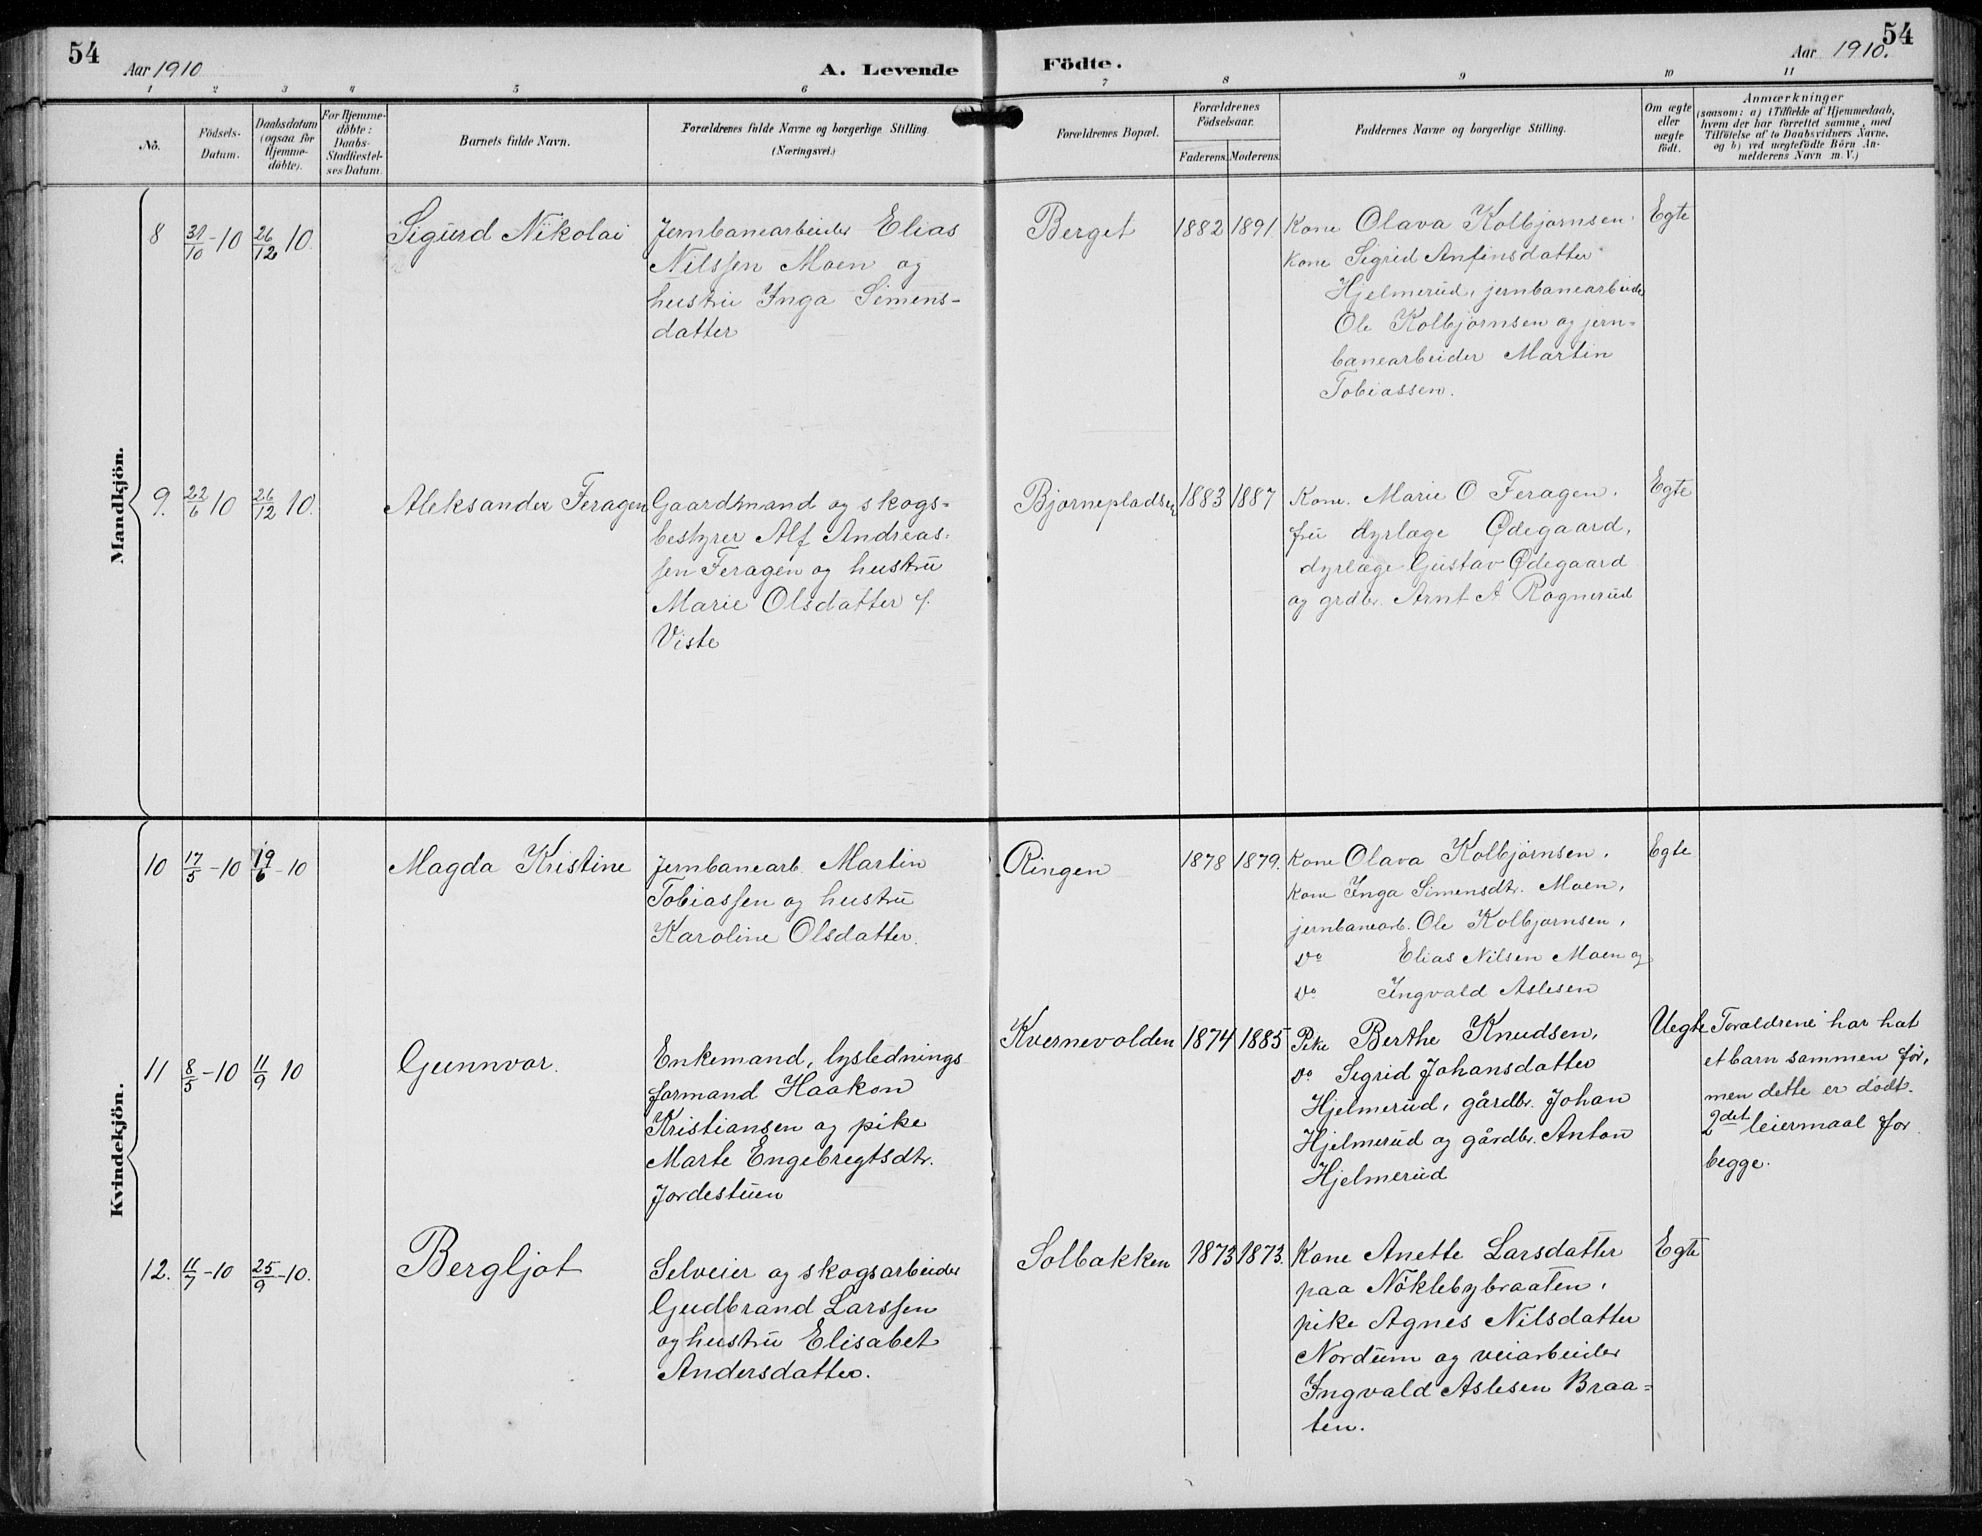 54
Aar 1910
A. Levende
Födte.
Aar 1910.
54
1 2 3 4 5 6 7 8 9 10 11
No.
Födsels-
Datum.
Daabsdatum
(ogsaa for
Hjemme-
døbte).
For Hjemme-
døbte:
Daabs-
Stadfæstel-
ses Datum.
Barnets fulde Navn.
Forældrenes fulde Navne og borgerlige Stilling.
(Næringsvei.)
Forældrenes Bopæl.
Forældrenes
Födselsaar.
Faderens. Moderens.
Faddernes Navne og borgerlige Stilling.
Om ægte
eller
uægte
födt.
Anmærkninger
(saasom: a) i Tilfælde af Hjemmedaab,
hvem der har forrettet samme, med
Tilföielse af to Daabsvidners Navne,
og b) ved uægtefödte Börn An-
melderens Navn m. V.)
Mandkjön.
8 31/10-10 26/12 10.
Sigurd Nikolai
Jernbanearbeider Elias
Nilssen Moen og
hustru Inga Simens-
datter
Berget
1882 1891.
Kone Olava Kolbjørnsen.
Kone Sigrid Anfinsdatter
Hjelmerud, jernbanearbeider
Ole Kolbjørnsen og jern-
banearbeider Martin
Tobiassen.
Egte
9. 22/6 10 26/12 10.
Aleksander Feragen
Gaardmand og skogs-
bestyrer Alf Andreas-
sen Feragen og hustru
Marie Olsdatter f.
Viste
Bjørnepladsen
1883 1887
Kone. Marie O Feragen.
fru dyrlæge Ødegaard,
dyrlæge Gustav Ødegaard
og grdbr. Arnt A Rognerud
Egte
Kvindekjön.
10 17/5-10 19/6-10
Magda Kristine
Jernbanearb. Martin
Tobiassen og hustru
Karoline Olsdatter.
Ringen
1878 1879.
Kone Olava Kolbjørnsen.
Kone Inga Simensdtr. Moen,
jernbanearb. Ole Kolbjørnsen,
Do Elias Nilsen Moen og
Do Ingvald Aslesen
Egte
11 8/5-10 11/9 10
Gunnvor.
Enkemand, lyslednings
formand Haakon
Kristiansen og pike
Marte Engebregtsdtr.
Jordestuen
Kvernevolden
1874 1885
Pike Berthe Knudsen,
Do Sigrid Johansdatter
Hjelmerud, gårdbr. Johan
Hjelmerud og gårdbr. Anton
Hjelmerud
Uegte
Foraldrene har hat
et barn sammen før,
men dette er dødt.
2det leiermaal for
begge.
12. 11/7-10 25/9-10.
Bergljot
Selveier og skogsarbeider
Gudbrand Larssen
og hustru Elisabet
Andersdatter.
Solbakken
1873 1873.
Kone Anette Larsdatter
paa Nøklebybraaten,
pike Agnes Nilsdatter
Nordum og veiarbeider
Ingvald Aslesen Braa-
ten.
Egte